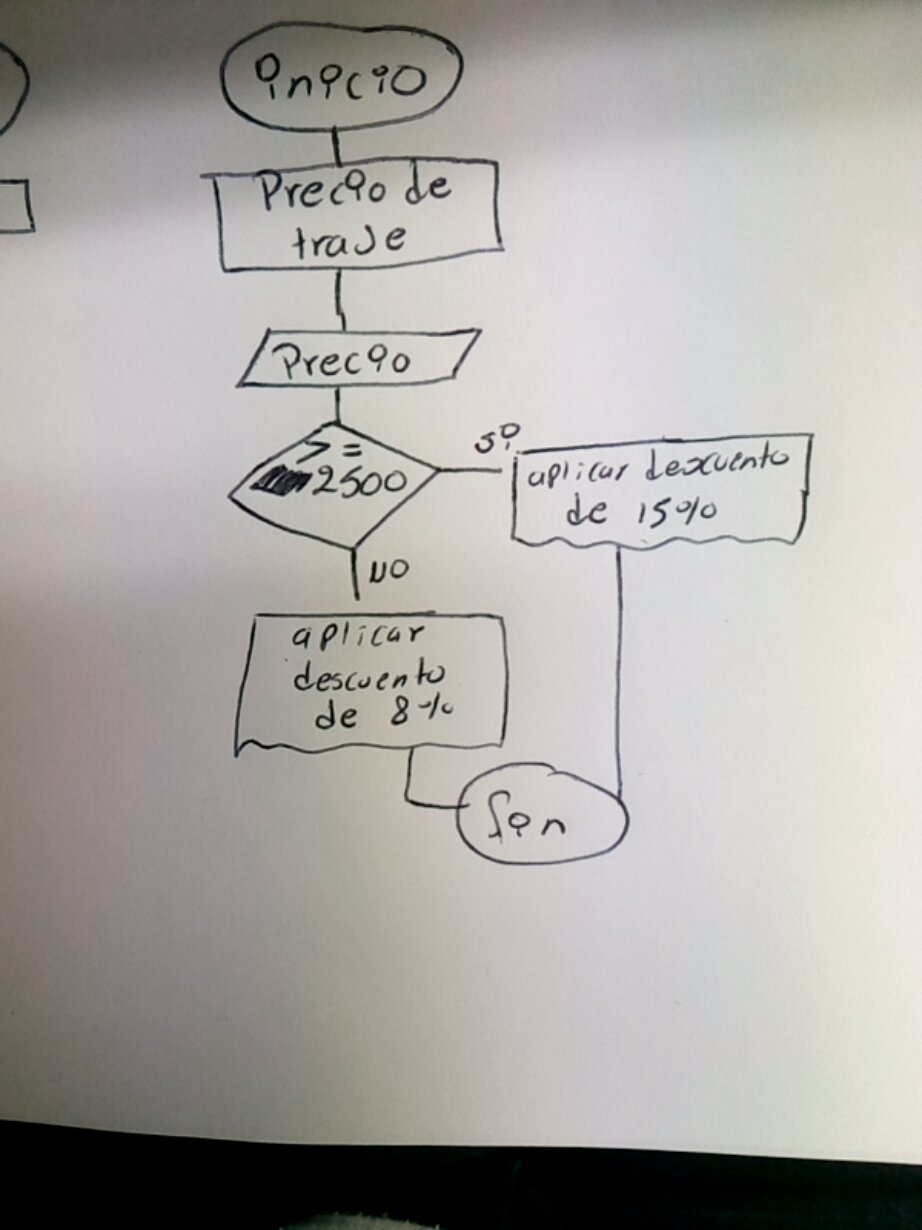 inicio
Precio de
traje
Precio
>=
2500
si
aplicar descuento
de 15%
NO
aplicar
descuento
de 8%
fin